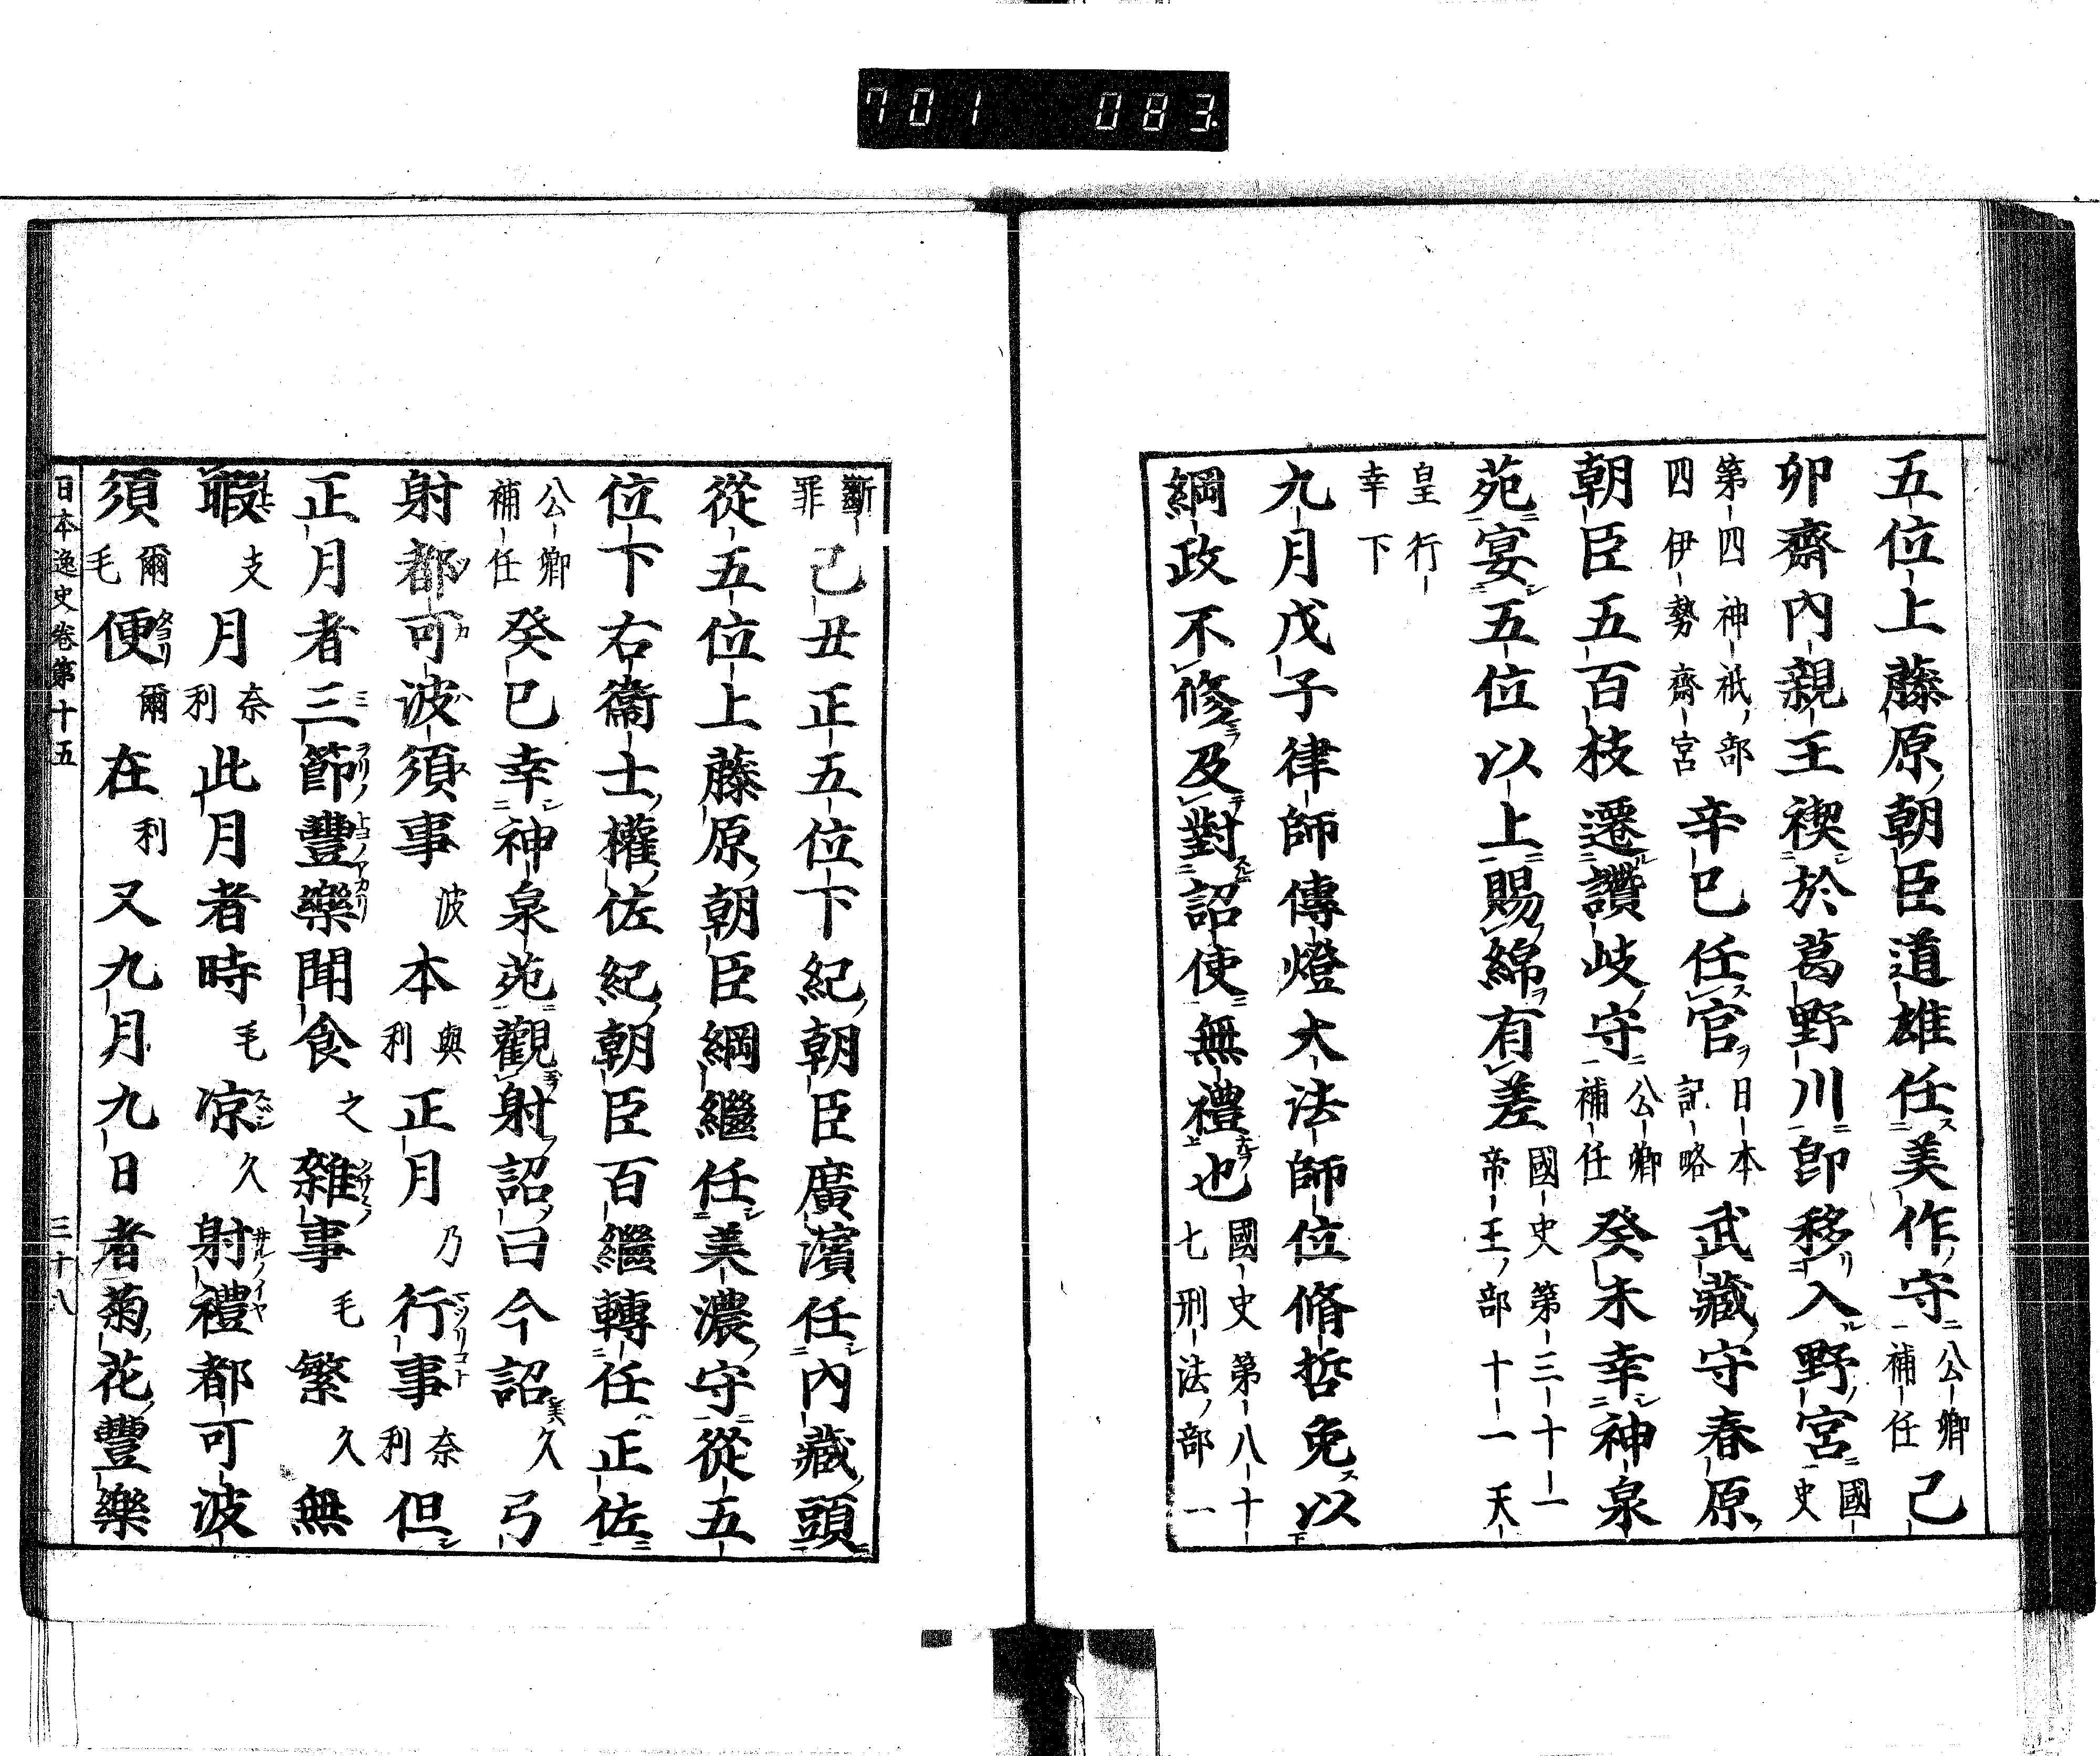 701 083
五位上藤原朝臣道雄任美作守公卿補任己
卯齋內親王禊於葛野川卽移入野宮國史
第四神祇部四伊勢齋宮辛巳任官日本記略武藏守春原
朝臣五百枝遷讚岐守公卿補任癸未幸神泉
苑宴五位以上賜綿有差國史第三十一帝王部十一天
皇行幸下
九月戊子律師傳燈大法師位脩哲免以
綱政不修及對詔使無禮也國史第八十七刑法部一
斷罪己丑正五位下紀朝臣廣濱任內藏頭
從五位上藤原朝臣綱繼任美濃守從五
位下右衞士權佐紀朝臣百繼轉任正佐
公卿補任癸巳幸神泉苑觀射詔曰今詔久弓
射都可波須事波本與利正月乃行事奈利但
正月者三節豐樂聞食之雜事毛繁久無
暇支月奈利此月者時毛凉久射禮都可波
須爾毛便爾在利又九月九日者菊花豐樂
日本逸史卷第十五 三十八